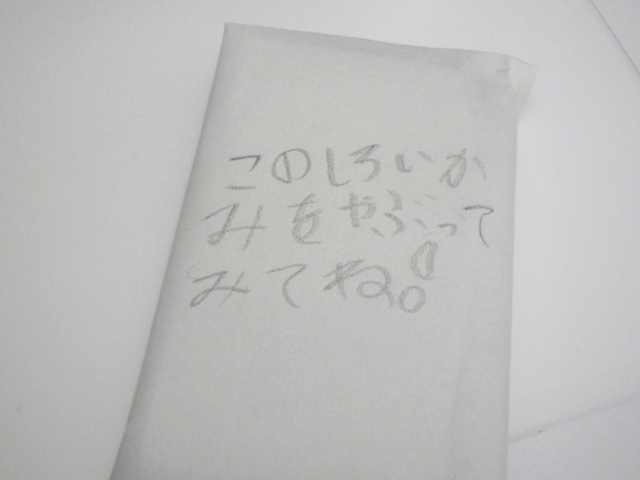 このしろいか
みをやぶって
みてね!